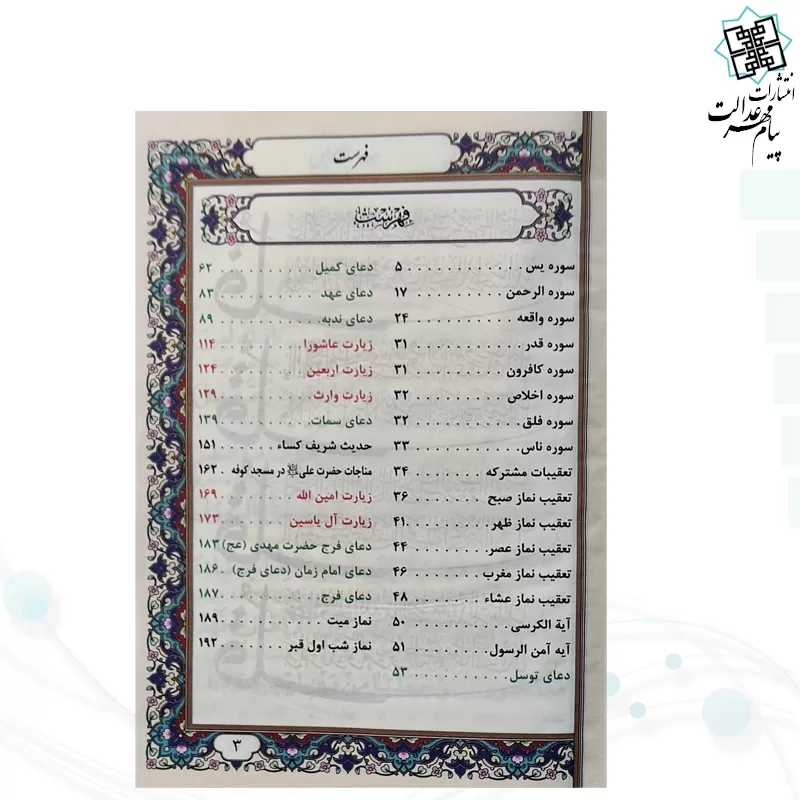 انتشارات
پیام مهر عدالت
فهرست
فهرست
سوره یس . . . . . . . . . . . . ۵
سوره الرحمن . . . . . . . . . ۱۷
سوره واقعه . . . . . . . . . . ۲۴
سوره قدر . . . . . . . . . . . . ۳۱
سوره کافرون . . . . . . . . . ۳۱
سوره اخلاص . . . . . . . . . ۳۲
سوره فلق . . . . . . . . . . . ۳۲
سوره ناس . . . . . . . . . . . ۳۳
تعقیبات مشترکه . . . . . . ۳۴
تعقیب نماز صبح . . . . . . ۳۶
تعقیب نماز ظهر . . . . . . . ۴۱
تعقیب نماز عصر . . . . . . ۴۴
تعقیب نماز مغرب . . . . . ۴۶
تعقیب نماز عشاء . . . . . ۴۸
آیة الکرسی . . . . . . . . . . ۵۰
آیه آمن الرسول . . . . . . . ۵۱
دعای توسل . . . . . . . . . . ۵۳
دعای کمیل . . . . . . . . . . ۶۲
دعای عهد . . . . . . . . . . . ۸۳
دعای ندبه . . . . . . . . . . . ۸۹
زیارت عاشورا . . . . . . . . ۱۱۴
زیارت اربعین . . . . . . . . ۱۲۴
زیارت وارث . . . . . . . . . ۱۲۹
دعای سمات . . . . . . . . . ۱۳۹
حدیث شریف کساء . . . . . ۱۵۱
مناجات حضرت علی در مسجد کوفه . ۱۶۲
زیارت امین الله . . . . . . . ۱۶۹
زیارت آل یاسین . . . . . . . ۱۷۳
دعای فرج حضرت مهدی (عج) ۱۸۳
دعای امام زمان (دعای فرج) . ۱۸۶
دعای فرج . . . . . . . . . . . ۱۸۷
نماز میت . . . . . . . . . . . ۱۸۹
نماز شب اول قبر . . . . . . ۱۹۲
۳